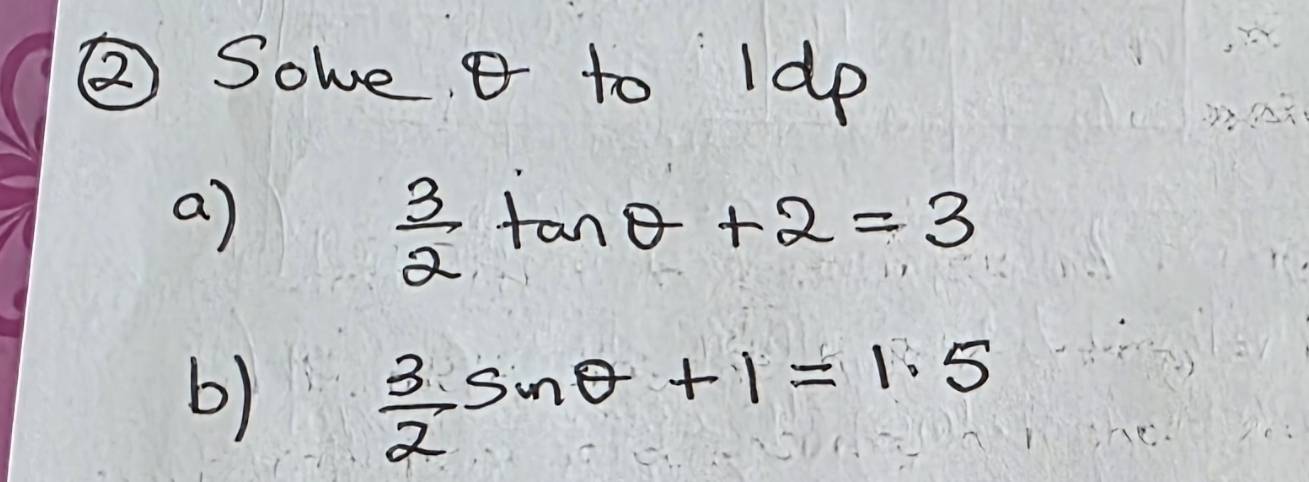 ② Solve θ to 1dp
a) 3/2 tan θ + 2 = 3
b) 3/2 sin θ + 1 = 1.5